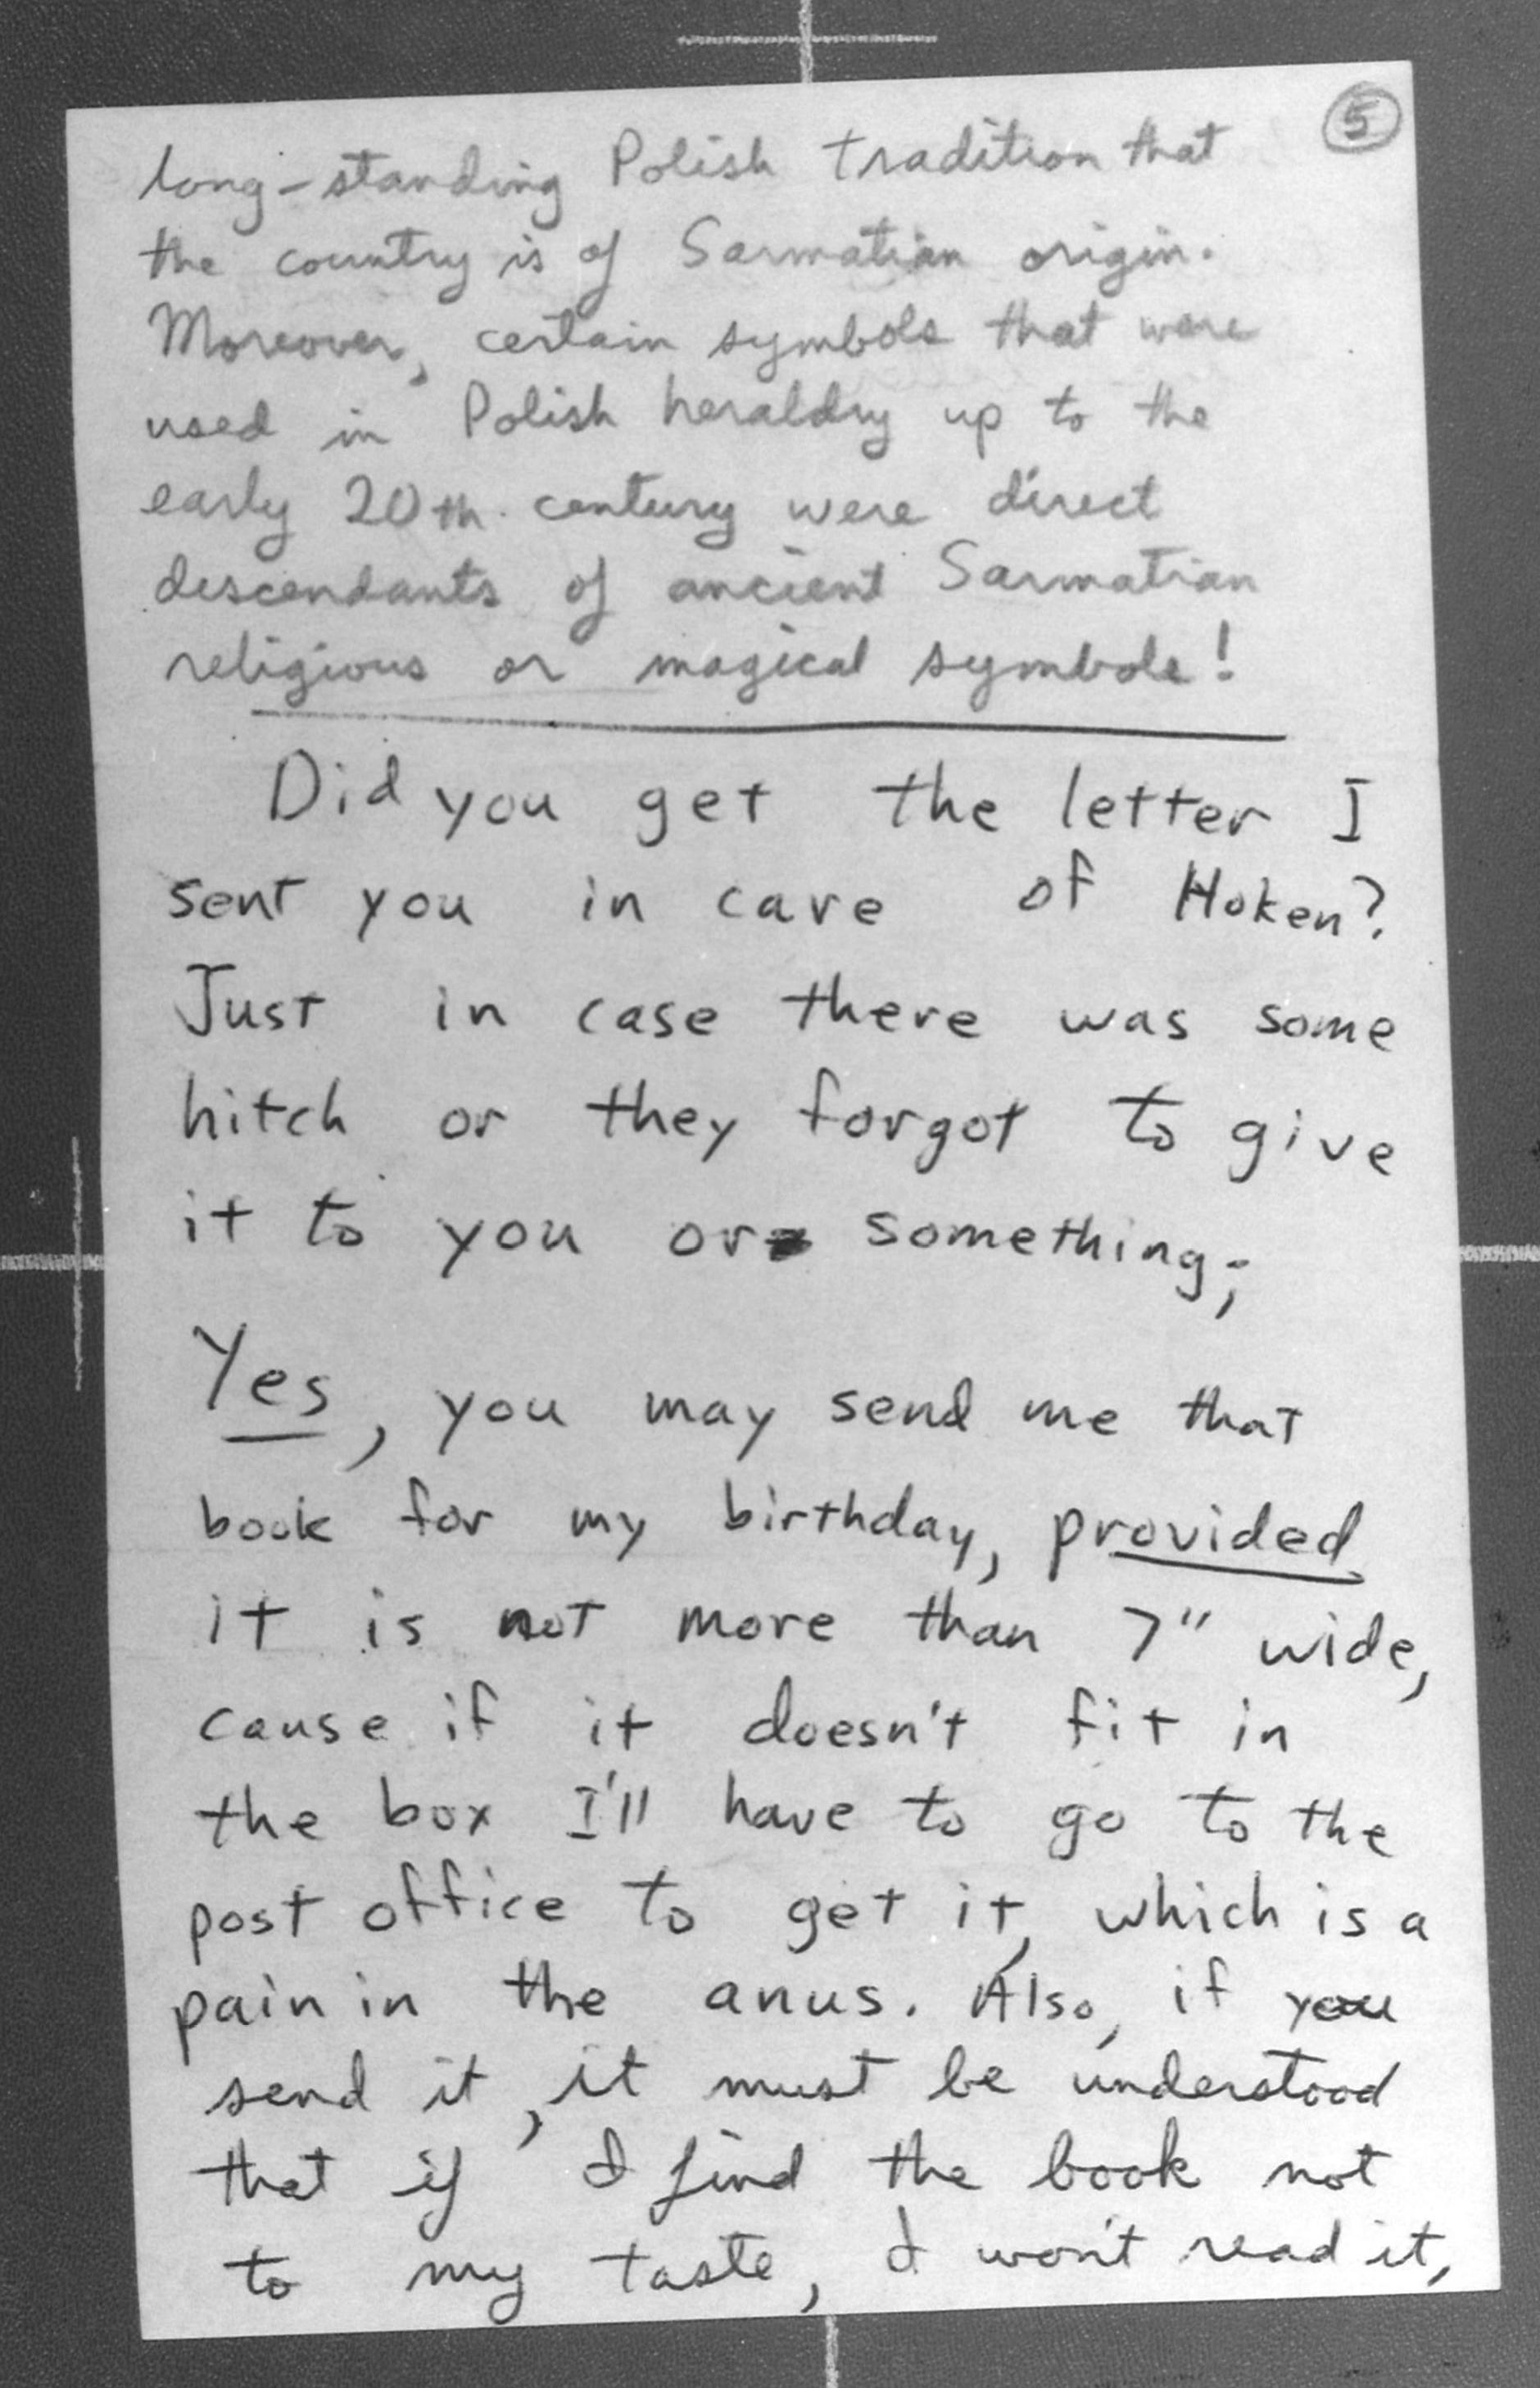 5
long-standing Polish tradition that
the country is of Sarmatian origin.
Moreover, certain symbols that were
used in Polish heraldry up to the
early 20th. century were direct
descendants of ancient Sarmatian
religious or magical symbols!
Did you get the letter I
sent you in care of Hoken?
Just in case there was some
hitch or they forgot to give
it to you or something;
Yes, you may send me that
book for my birthday, provided
it is not more than 7" wide,
cause if it doesn't fit in
the box I'll have to go to the
post office to get it, which is a
pain in the anus. Also, if you
send it, it must be understood
that if I find the book not
to my taste, I won't read it,